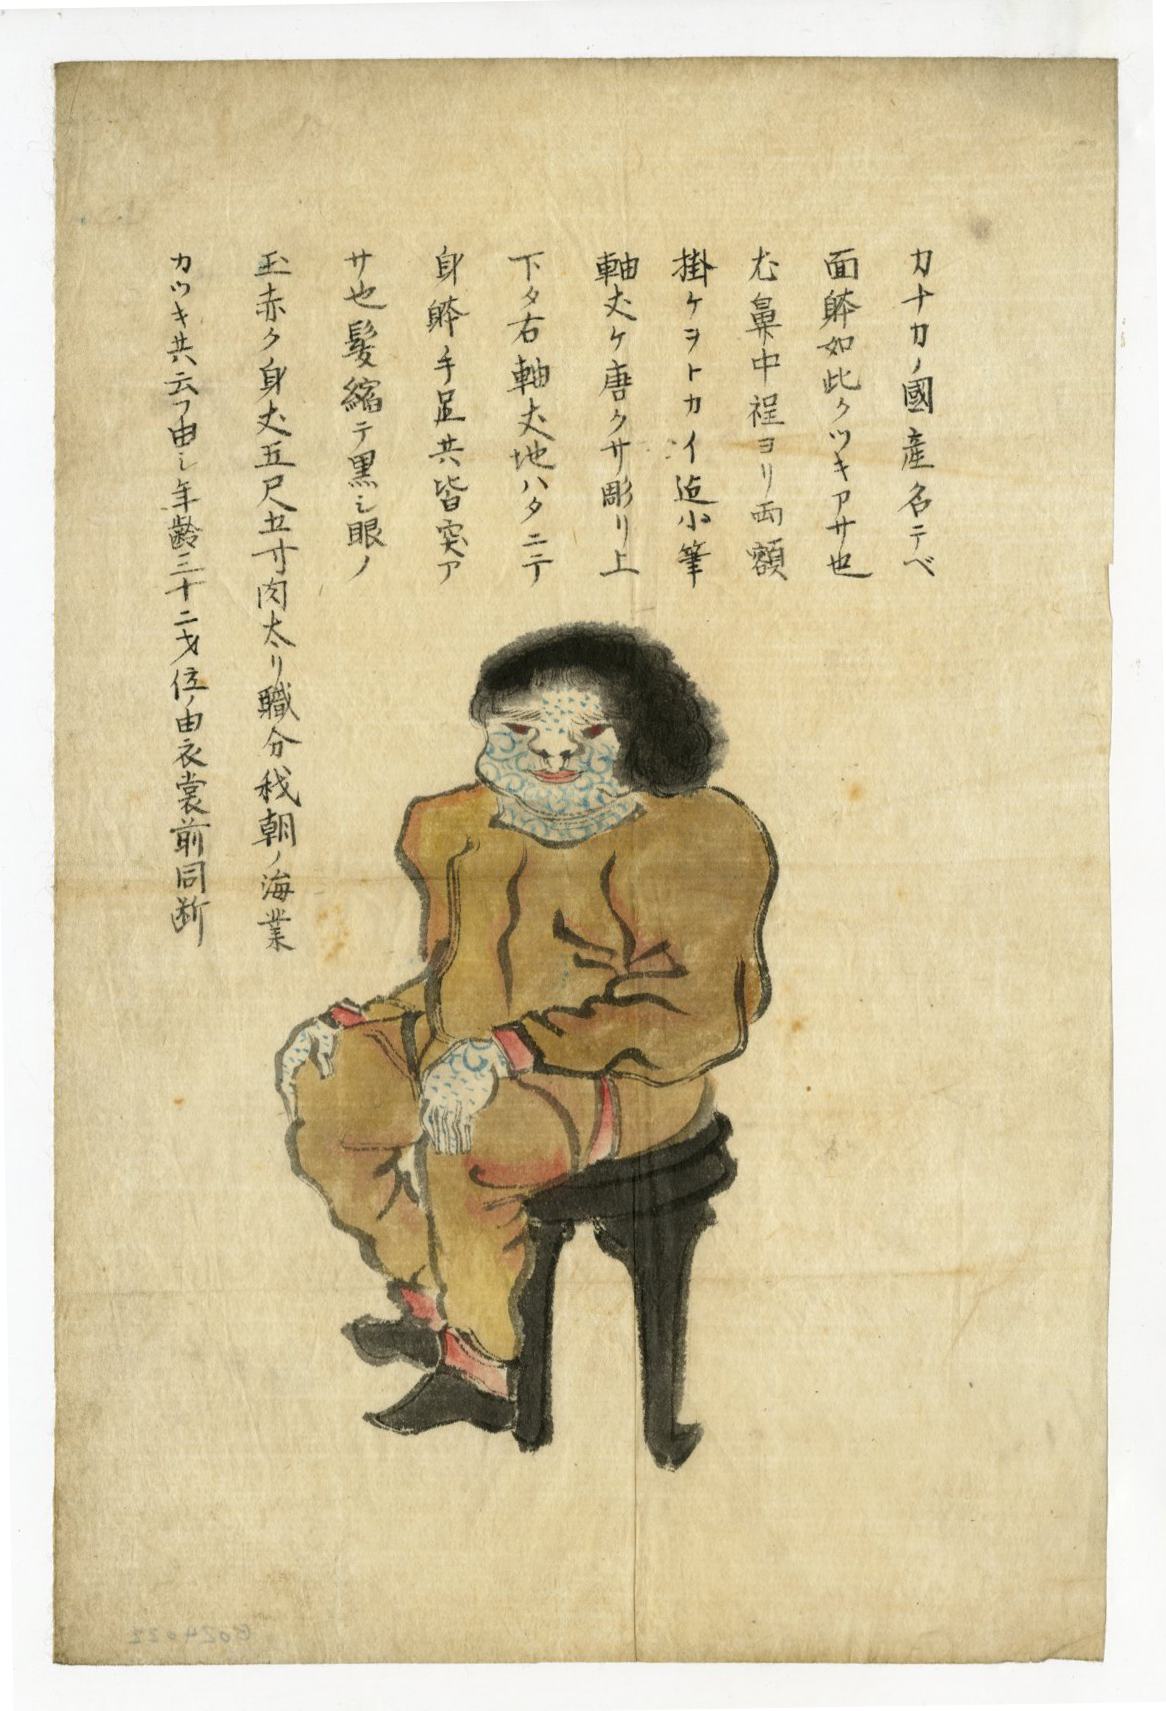 カナカノ國産名テベ
面躰如此クツキアサ也
尤鼻中程ヨリ両額
掛ケヲトカイ迄小筆
軸丈ケ唐クサ彫リ上
下タ右軸丈地ハタニテ
身躰手足共皆突ア
サ也髪縮テ黒シ眼ノ
玉赤ク身丈五尺五寸肉太リ職分我朝ノ海業
カツキ共云フ由シ年齢三十二才位ノ由衣裳前同断
8024022